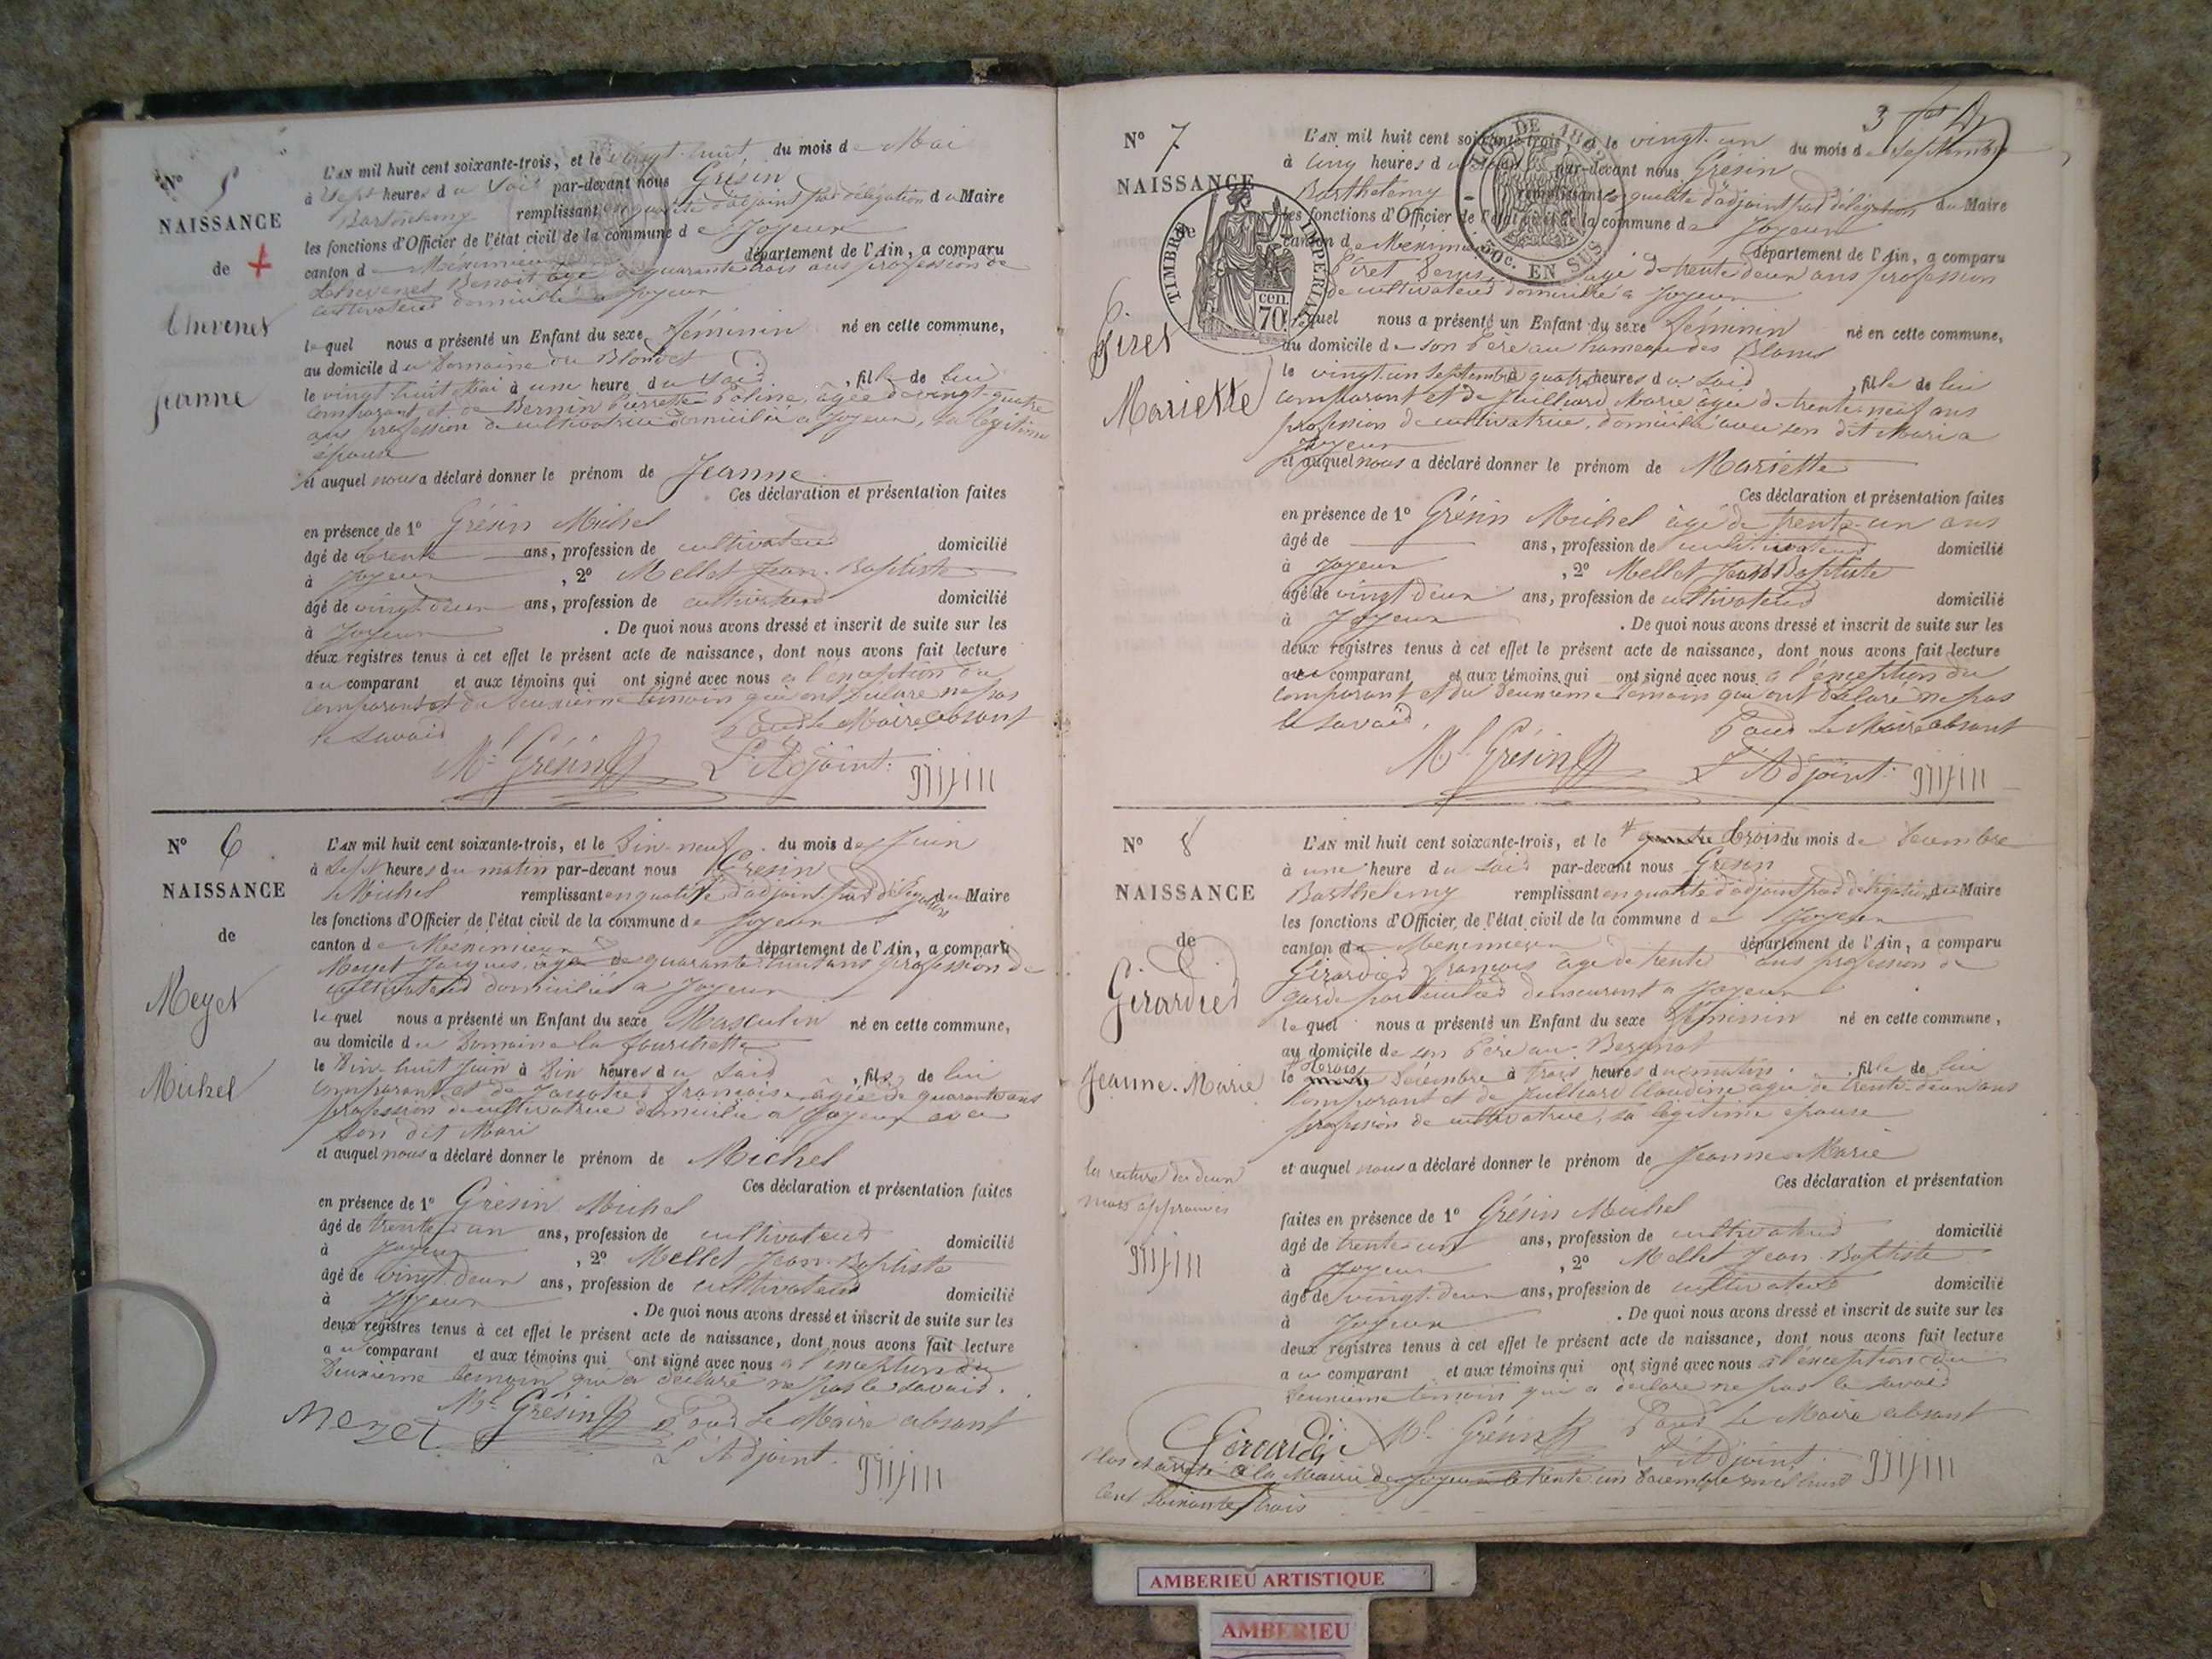 N° 5
NAISSANCE
de +
Thevenet
Jeanne
L'AN mil huit cent soixante-trois, et le vingt-huit du mois de Mai
à sept heures du soir par-devant nous Grésin
Barthélemy remplissant en qualité d'adjoint par délégation du Maire
les fonctions d'Officier de l'état civil de la commune de Joyeux
canton de Méximieux département de l'Ain, a comparu
Thevenet Benoit âgé de quarante trois ans profession de
cultivateur domicilié à Joyeux
lequel nous a présenté un Enfant du sexe féminin né en cette commune,
au domicile du Domaine du Blondet
le vingt huit Mai à une heure du soir, fille de lui
comparant et de Bernin Pierrette Poline, âgée de vingt-quatre
ans profession de cultivatrice domiciliée à Joyeux, sa légitime
épouse
et auquel nous a déclaré donner le prénom de Jeanne
Ces déclaration et présentation faites
en présence de 1° Grésin Michel
âgé de trente ans, profession de cultivateur domicilié
à Joyeux, 2° Mellet Jean-Baptiste
âgé de vingt deux ans, profession de cultivateur domicilié
à Joyeux. De quoi nous avons dressé et inscrit de suite sur les
deux registres tenus à cet effet le présent acte de naissance, dont nous avons fait lecture
au comparant et aux témoins qui ont signé avec nous à l'exception du
comparant et du deuxième témoin qui ont déclaré ne pas
le savoir Pour le Maire absent
Mel Grésin L'Adjoint:
N° 6
NAISSANCE
de
Meyet
Michel
L'AN mil huit cent soixante-trois, et le Dix-neuf du mois de Juin
à sept heures du matin par-devant nous Grésin
Michel remplissant en qualité d'adjoint par délégation du Maire
les fonctions d'Officier de l'état civil de la commune de Joyeux
canton de Méximieux département de l'Ain, a comparu
Meyet Jacques, âgé de quarante huit ans profession de
cultivateur domicilié à Joyeux
lequel nous a présenté un Enfant du sexe Masculin né en cette commune,
au domicile du Domaine la fourchette
le Dix-huit Juin à Dix heures du soir, fils de lui
comparant et de françoise âgée de quarante ans
profession de cultivatrice domiciliée à Joyeux avec
son dit Mari
et auquel nous a déclaré donner le prénom de Michel
Ces déclaration et présentation faites
en présence de 1° Grésin Michel
âgé de trente un ans, profession de cultivateur domicilié
à Joyeux, 2° Mellet Jean-Baptiste
âgé de vingt deux ans, profession de cultivateur domicilié
à Joyeux. De quoi nous avons dressé et inscrit de suite sur les
deux registres tenus à cet effet le présent acte de naissance, dont nous avons fait lecture
au comparant et aux témoins qui ont signé avec nous à l'exception du
Deuxième témoin qui a déclaré ne pas le savoir.
Mel Grésin Pour Le Maire absent
Meyet L'Adjoint.
3
N° 7
NAISSANCE
de
Piret
Mariette
TIMBRE IMPERIAL
cen. 70
DE 50c. EN SUS
L'AN mil huit cent soixante-trois, et le vingt-un du mois de Septembre
à cinq heures du soir par-devant nous Grésin
Barthélemy remplissant en qualité d'adjoint par délégation du Maire
les fonctions d'Officier de l'état civil de la commune de Joyeux
canton de Meximieux département de l'Ain, a comparu
Piret Denis âgé de trente deux ans profession
de cultivateur domicilié à Joyeux
lequel nous a présenté un Enfant du sexe féminin né en cette commune,
au domicile de son Père au hameau des Blancs
le vingt-un Septembre quatre heures du soir, fille de lui
comparant et de Juilliard Marie âgée de trente-neuf ans
profession de cultivatrice, domiciliée avec son dit Mari à
Joyeux
et auquel nous a déclaré donner le prénom de Mariette
Ces déclaration et présentation faites
en présence de 1° Grésin Michel âgé de trente-un ans
âgé de ans, profession de cultivateur domicilié
à Joyeux, 2° Mellet Jean Baptiste
âgé de vingt deux ans, profession de cultivateur domicilié
à Joyeux. De quoi nous avons dressé et inscrit de suite sur les
deux registres tenus à cet effet le présent acte de naissance, dont nous avons fait lecture
au comparant et aux témoins qui ont signé avec nous à l'exception du
comparant et du deuxième témoin qui ont déclaré ne pas
le savoir. Pour Le Maire absent
Mel Grésin L'Adjoint:
N° 8
NAISSANCE
de
Girardier
Jeanne-Marie
la rature de deux
mots approuvés
L'AN mil huit cent soixante-trois, et le trois du mois de Décembre
à une heure du soir par-devant nous Grésin
Barthelemy remplissant en qualité d'adjoint par délégation du Maire
les fonctions d'Officier de l'état civil de la commune de Joyeux
canton de Meximieux département de l'Ain, a comparu
Girardier françois âgé de trente ans profession de
garde particulier demeurant à Joyeux
lequel nous a présenté un Enfant du sexe féminin né en cette commune,
au domicile de son Père au
le trois Décembre à trois heures du matin, fille de lui
comparant et de Juilliard Claudine âgée de trente-deux ans
profession de cultivatrice, sa légitime épouse
et auquel nous a déclaré donner le prénom de Jeanne Marie
Ces déclaration et présentation
faites en présence de 1° Grésin Michel
âgé de trente un ans, profession de cultivateur domicilié
à Joyeux, 2° Mellet Jean-Baptiste
âgé de vingt-deux ans, profession de cultivateur domicilié
à Joyeux. De quoi nous avons dressé et inscrit de suite sur les
deux registres tenus à cet effet le présent acte de naissance, dont nous avons fait lecture
au comparant et aux témoins qui ont signé avec nous à l'exception du
deuxième témoin qui a déclaré ne pas le savoir
Pour Le Maire absent
Girardier Mel Grésin L'Adjoint:
Clos et arrêté à la Mairie de Joyeux le trente un Décembre mil huit
cent soixante trois
AMBERIEU ARTISTIQUE
AMBERIEU